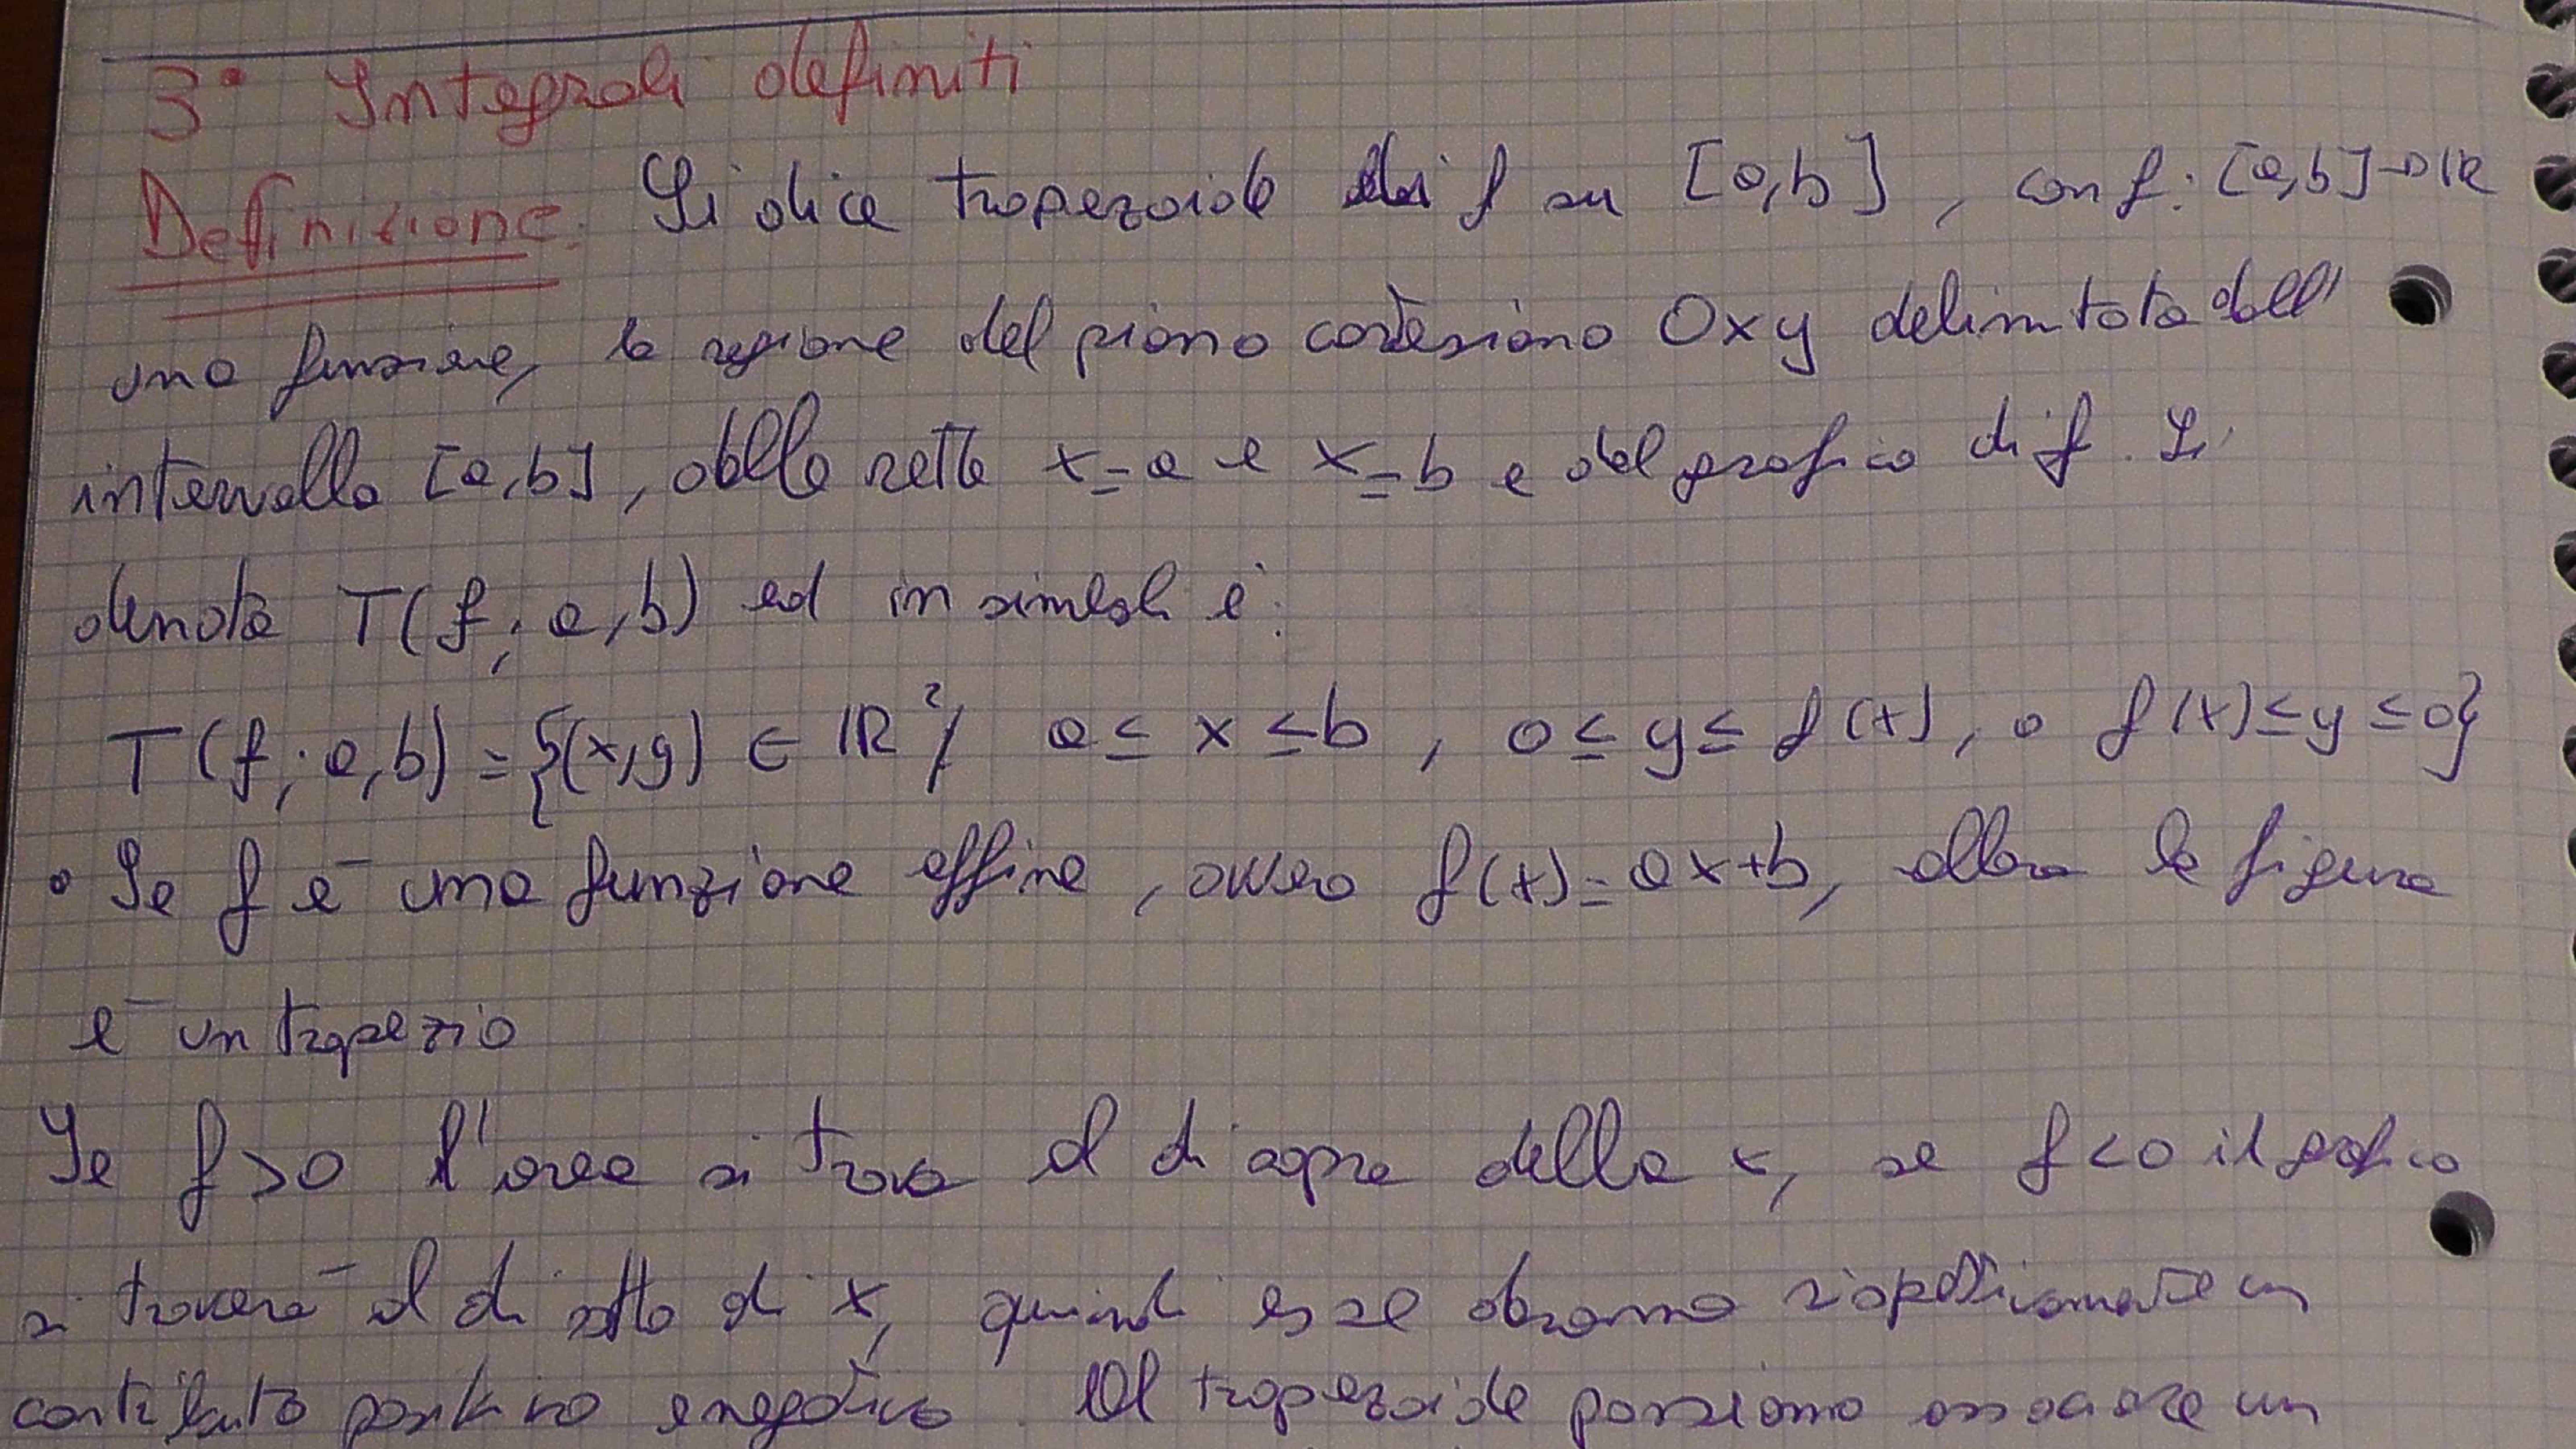 3° Integrali definiti
Definizione: Si dice trapezoide di f su [a,b], con f: [a,b]→ℝ
una funzione, la regione del piano cartesiano Oxy delimitata dall'
intervallo [a,b], dalle rette x=a e x=b e dal grafico di f. Si
denota T(f; a,b) ed in simboli è:
T(f; a,b) = {(x,y) ∈ ℝ²/ a ≤ x ≤ b, 0 ≤ y ≤ f(x), o f(x) ≤ y ≤ 0}
• Se f è una funzione affine, ovvero f(x)=ax+b, allora la figura
è un trapezio
Se f>0 l'area si trova al di sopra della x, se f<0 il grafico
si troverà al di sotto di x, quindi esse daranno rispettivamente un
contributo positivo e negativo. Al trapezoide possiamo associare un